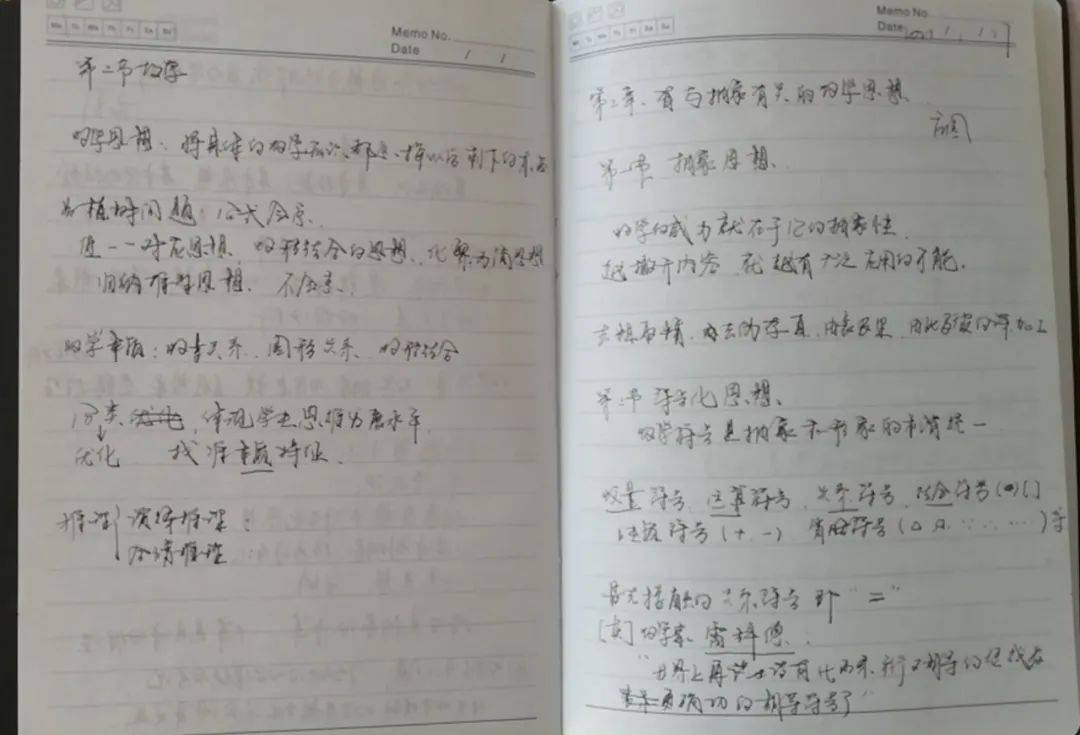 Memo No.
Date / /
第二节 数学
数学思想：将具体的数学知识都忘掉以后剩下的东西
如植树问题：公式会忘.
但一一对应思想、数形结合的思想、化繁为简思想
归纳推理思想、不会忘.
数学本质：数量关系、图形关系、数形结合
分类 体现学生思维的高水平
优化 找准本质特征.
推理 演绎推理：
合情推理
Memo No.
Date
第二章、有与抽象有关的数学思想
第一节 抽象思想.
数学的威力就在于它的抽象性
越撇开内容 就越有广泛应用的可能.
去粗取精、去伪存真、由表及里、由此及彼的 加工
第二节 符号化思想.
数学符号是抽象 形象的 统一
数量符号、运算符号、关系符号、结合符号( )[ ]
性质符号(+、-) 省略符号(△ )等
首先接触的关系符号 即"="
[英]数学家 雷科德.
"世界上再也没有比两条平行又相等的线段
更 的相等符号了"